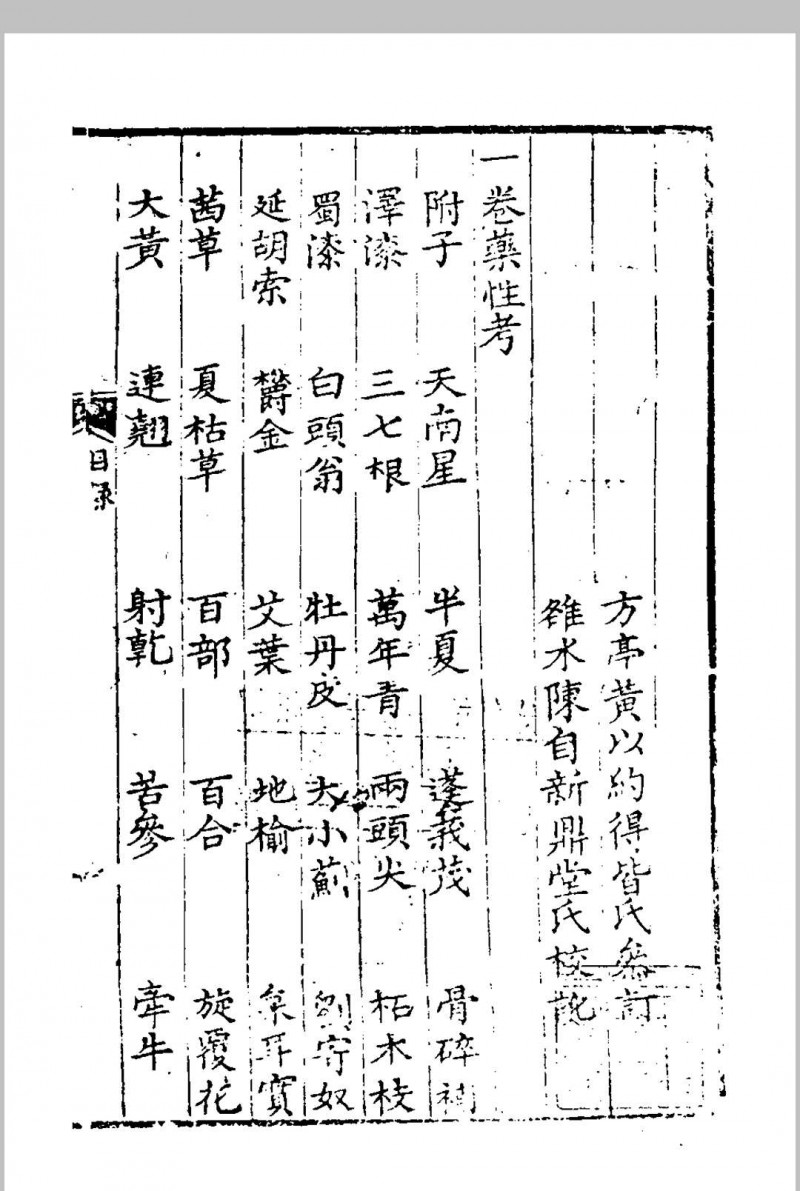 方亭黃以約得皆氏叅訂
雒水陳自新鼎堂氏校訛
一卷藥性考
附子 天南星 半夏 蓬莪茂 骨碎補
澤漆 三七根 萬年青 兩頭尖 柘木枝
蜀漆 白頭翁 牡丹皮 大小薊 劉寄奴
延胡索 欝金 艾葉 地榆 枲耳實
茜草 夏枯草 百部 百合 旋覆花
大黃 連翹 射乾 苦參 牽牛
目彔